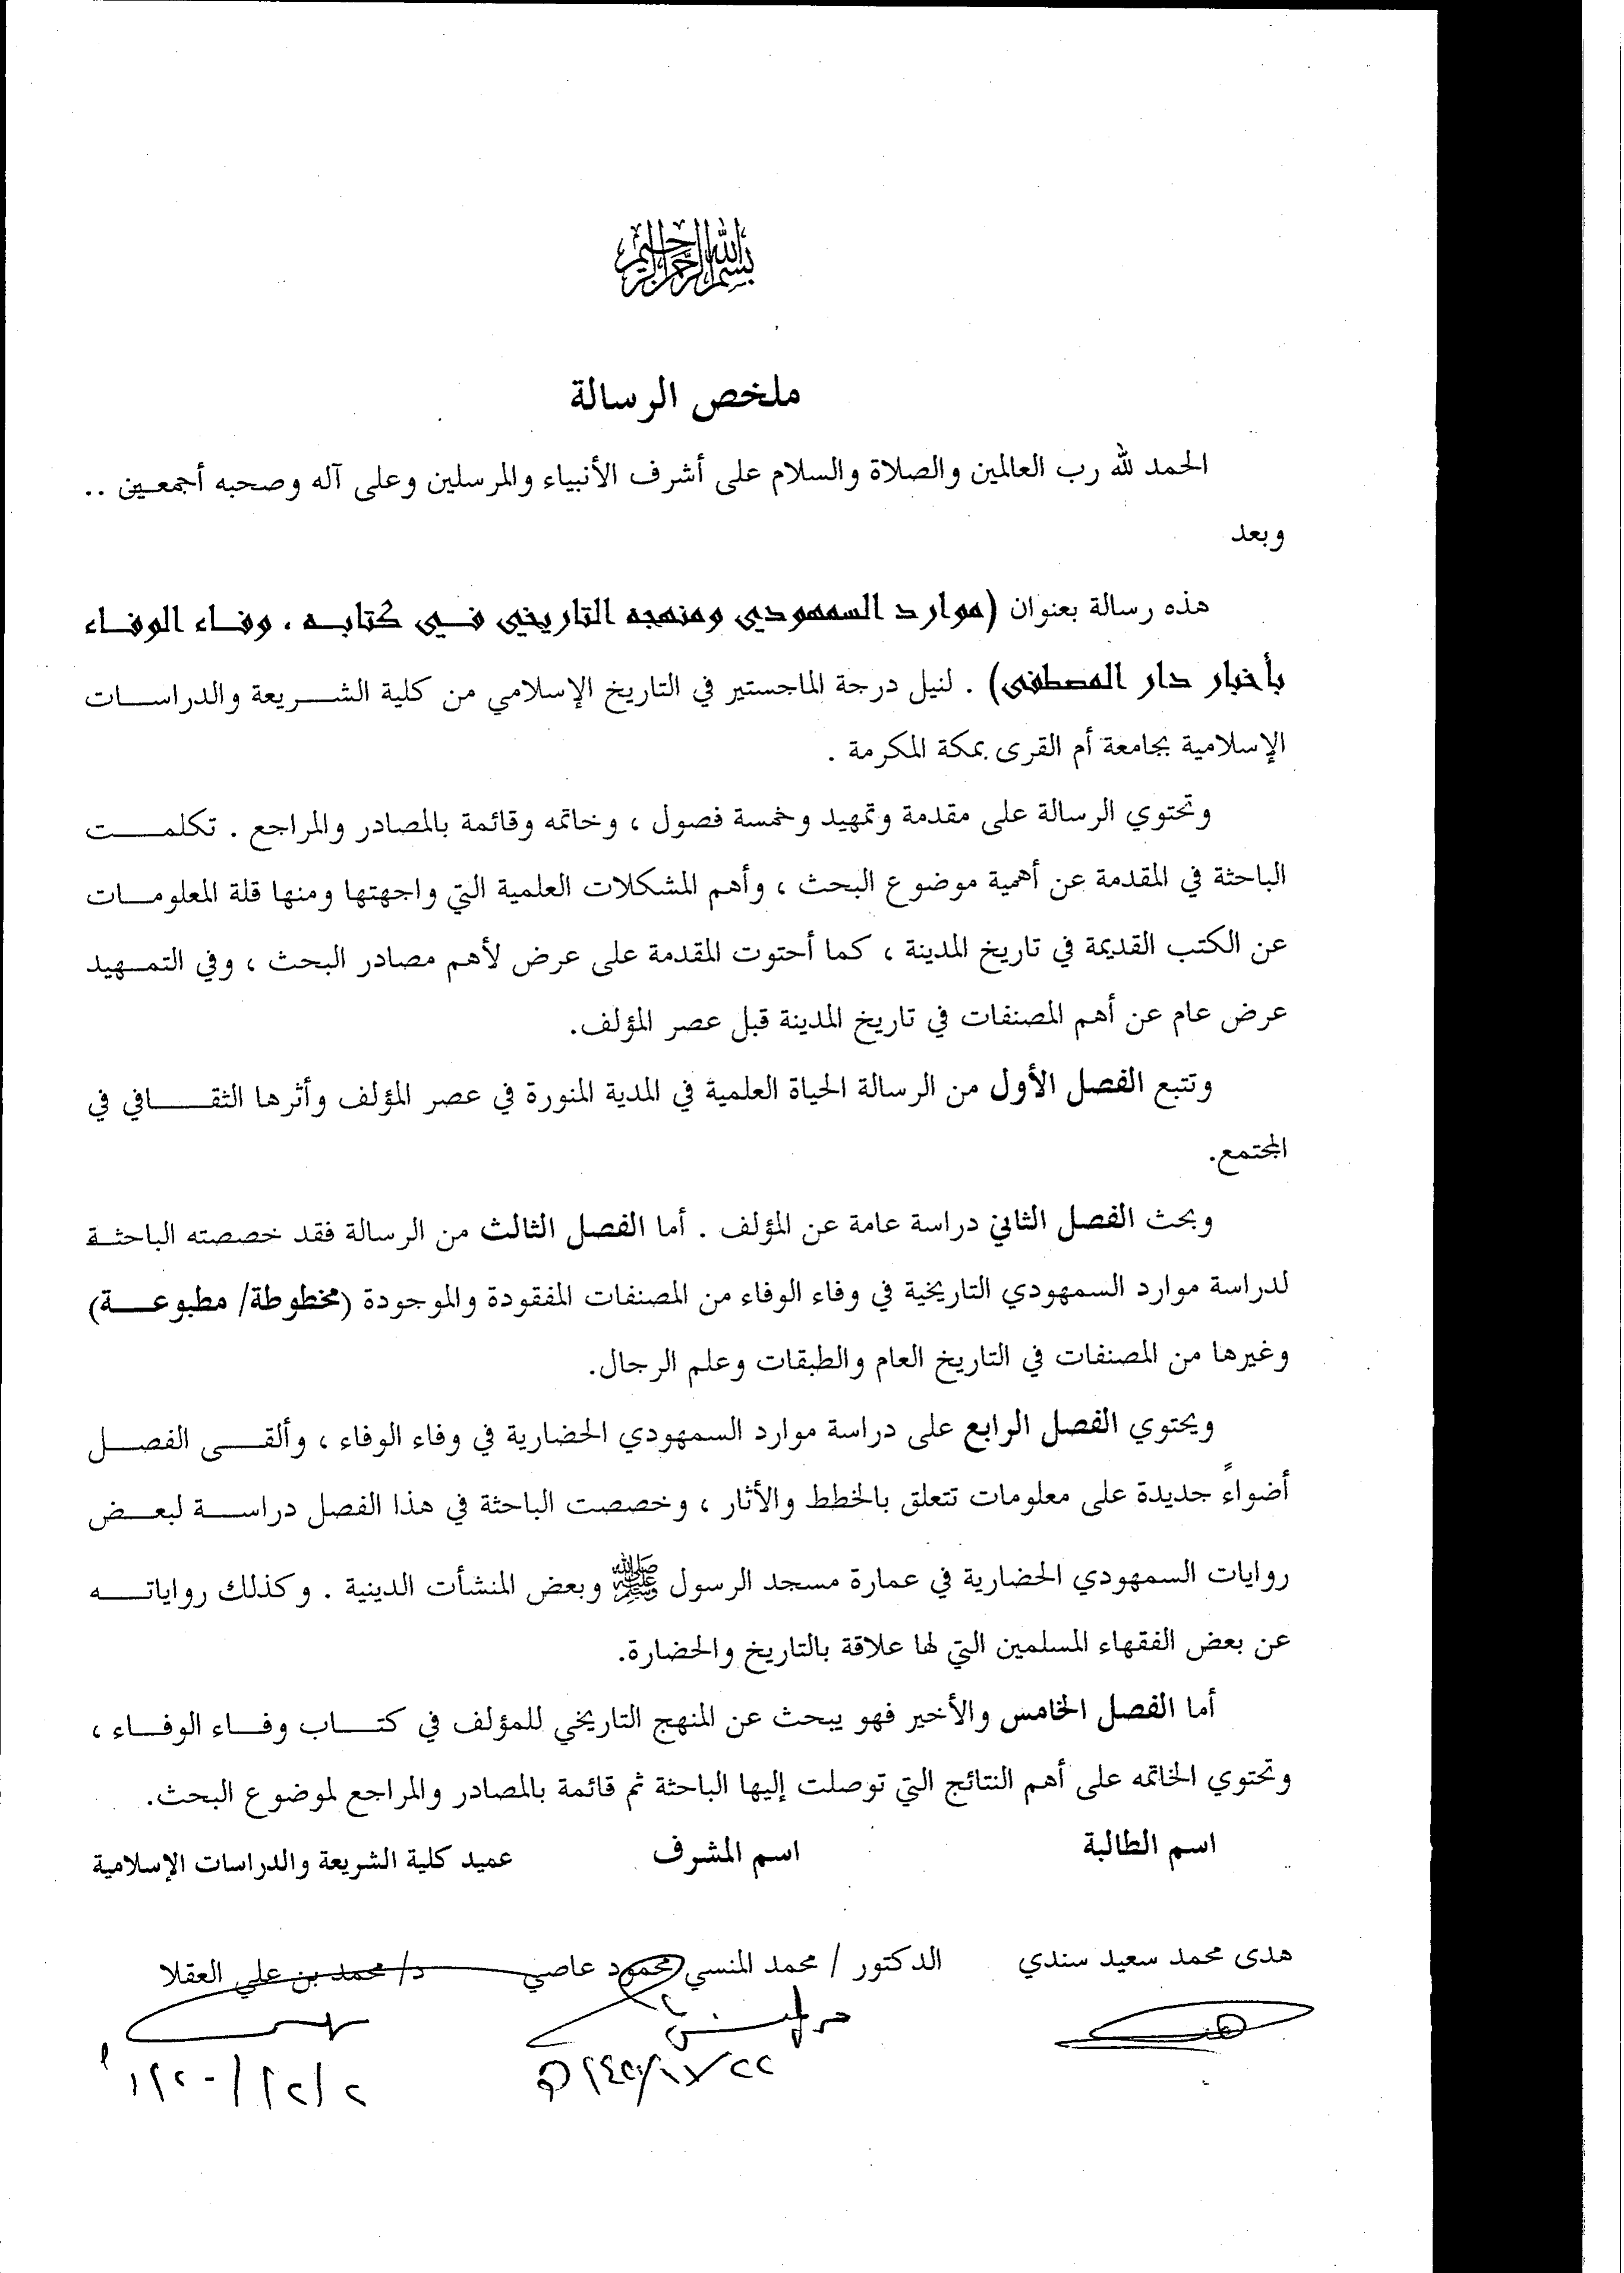 بسم الله الرحمن الرحيم
ملخص الرسالة
الحمد لله رب العالمين والصلاة والسلام على أشرف الأنبياء والمرسلين وعلى آله وصحبه أجمعين ..
وبعد
هذه رسالة بعنوان (موارد السمهودي ومنهجه التاريخي في كتابه . وفاء الوفاء
بأخبار دار المصطفى) . لنيل درجة الماجستير في التاريخ الإسلامي من كلية الشريعة والدراسات
الإسلامية بجامعة أم القرى بمكة المكرمة .
وتحتوي الرسالة على مقدمة وتمهيد وخمسة فصول ، وخاتمه وقائمة بالمصادر والمراجع . تكلمت
الباحثة في المقدمة عن أهمية موضوع البحث ، وأهم المشكلات العلمية التي واجهتها ومنها قلة المعلومات
عن الكتب القديمة في تاريخ المدينة ، كما أحتوت المقدمة على عرض لأهم مصادر البحث ، وفي التمهيد
عرض عام عن أهم المصنفات في تاريخ المدينة قبل عصر المؤلف.
وتتبع الفصل الأول من الرسالة الحياة العلمية في المدية المنورة في عصر المؤلف وأثرها الثقافي في
المجتمع.
وبحث الفصل الثاني دراسة عامة عن المؤلف . أما الفصل الثالث من الرسالة فقد خصصته الباحثة
لدراسة موارد السمهودي التاريخية في وفاء الوفاء من المصنفات المفقودة والموجودة (مخطوطة/ مطبوعة)
وغيرها من المصنفات في التاريخ العام والطبقات وعلم الرجال.
ويحتوي الفصل الرابع على دراسة موارد السمهودي الحضارية في وفاء الوفاء ، وألقى الفصل
أضواءً جديدة على معلومات تتعلق بالخطط والأثار ، وخصصت الباحثة في هذا الفصل دراسة لبعض
روايات السمهودي الحضارية في عمارة مسجد الرسول ﷺ وبعض المنشأت الدينية . وكذلك رواياته
عن بعض الفقهاء المسلمين التي لها علاقة بالتاريخ والحضارة.
أما الفصل الخامس والأخير فهو يبحث عن المنهج التاريخي للمؤلف في كتاب وفاء الوفاء ،
وتحتوي الخاتمه على أهم النتائج التي توصلت إليها الباحثة ثم قائمة بالمصادر والمراجع لموضوع البحث.
اسم الطالبة اسم المشرف عميد كلية الشريعة والدراسات الإسلامية
هدى محمد سعيد سندي الدكتور / محمد المنسي محمود عاصي د/ محمد بن علي العقلا